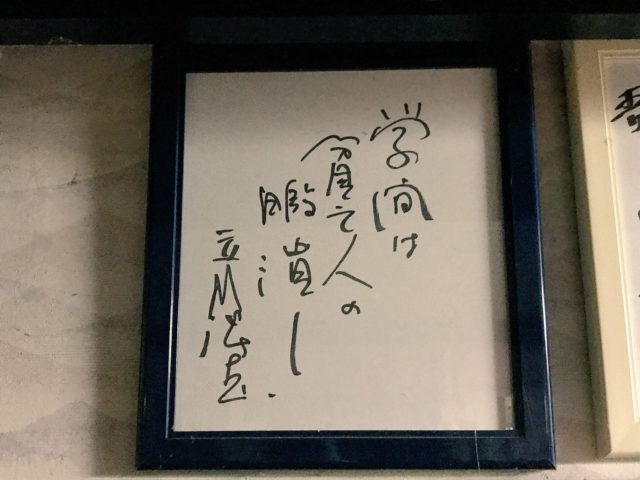 学問は
貧乏人の
暇潰し
立川談志